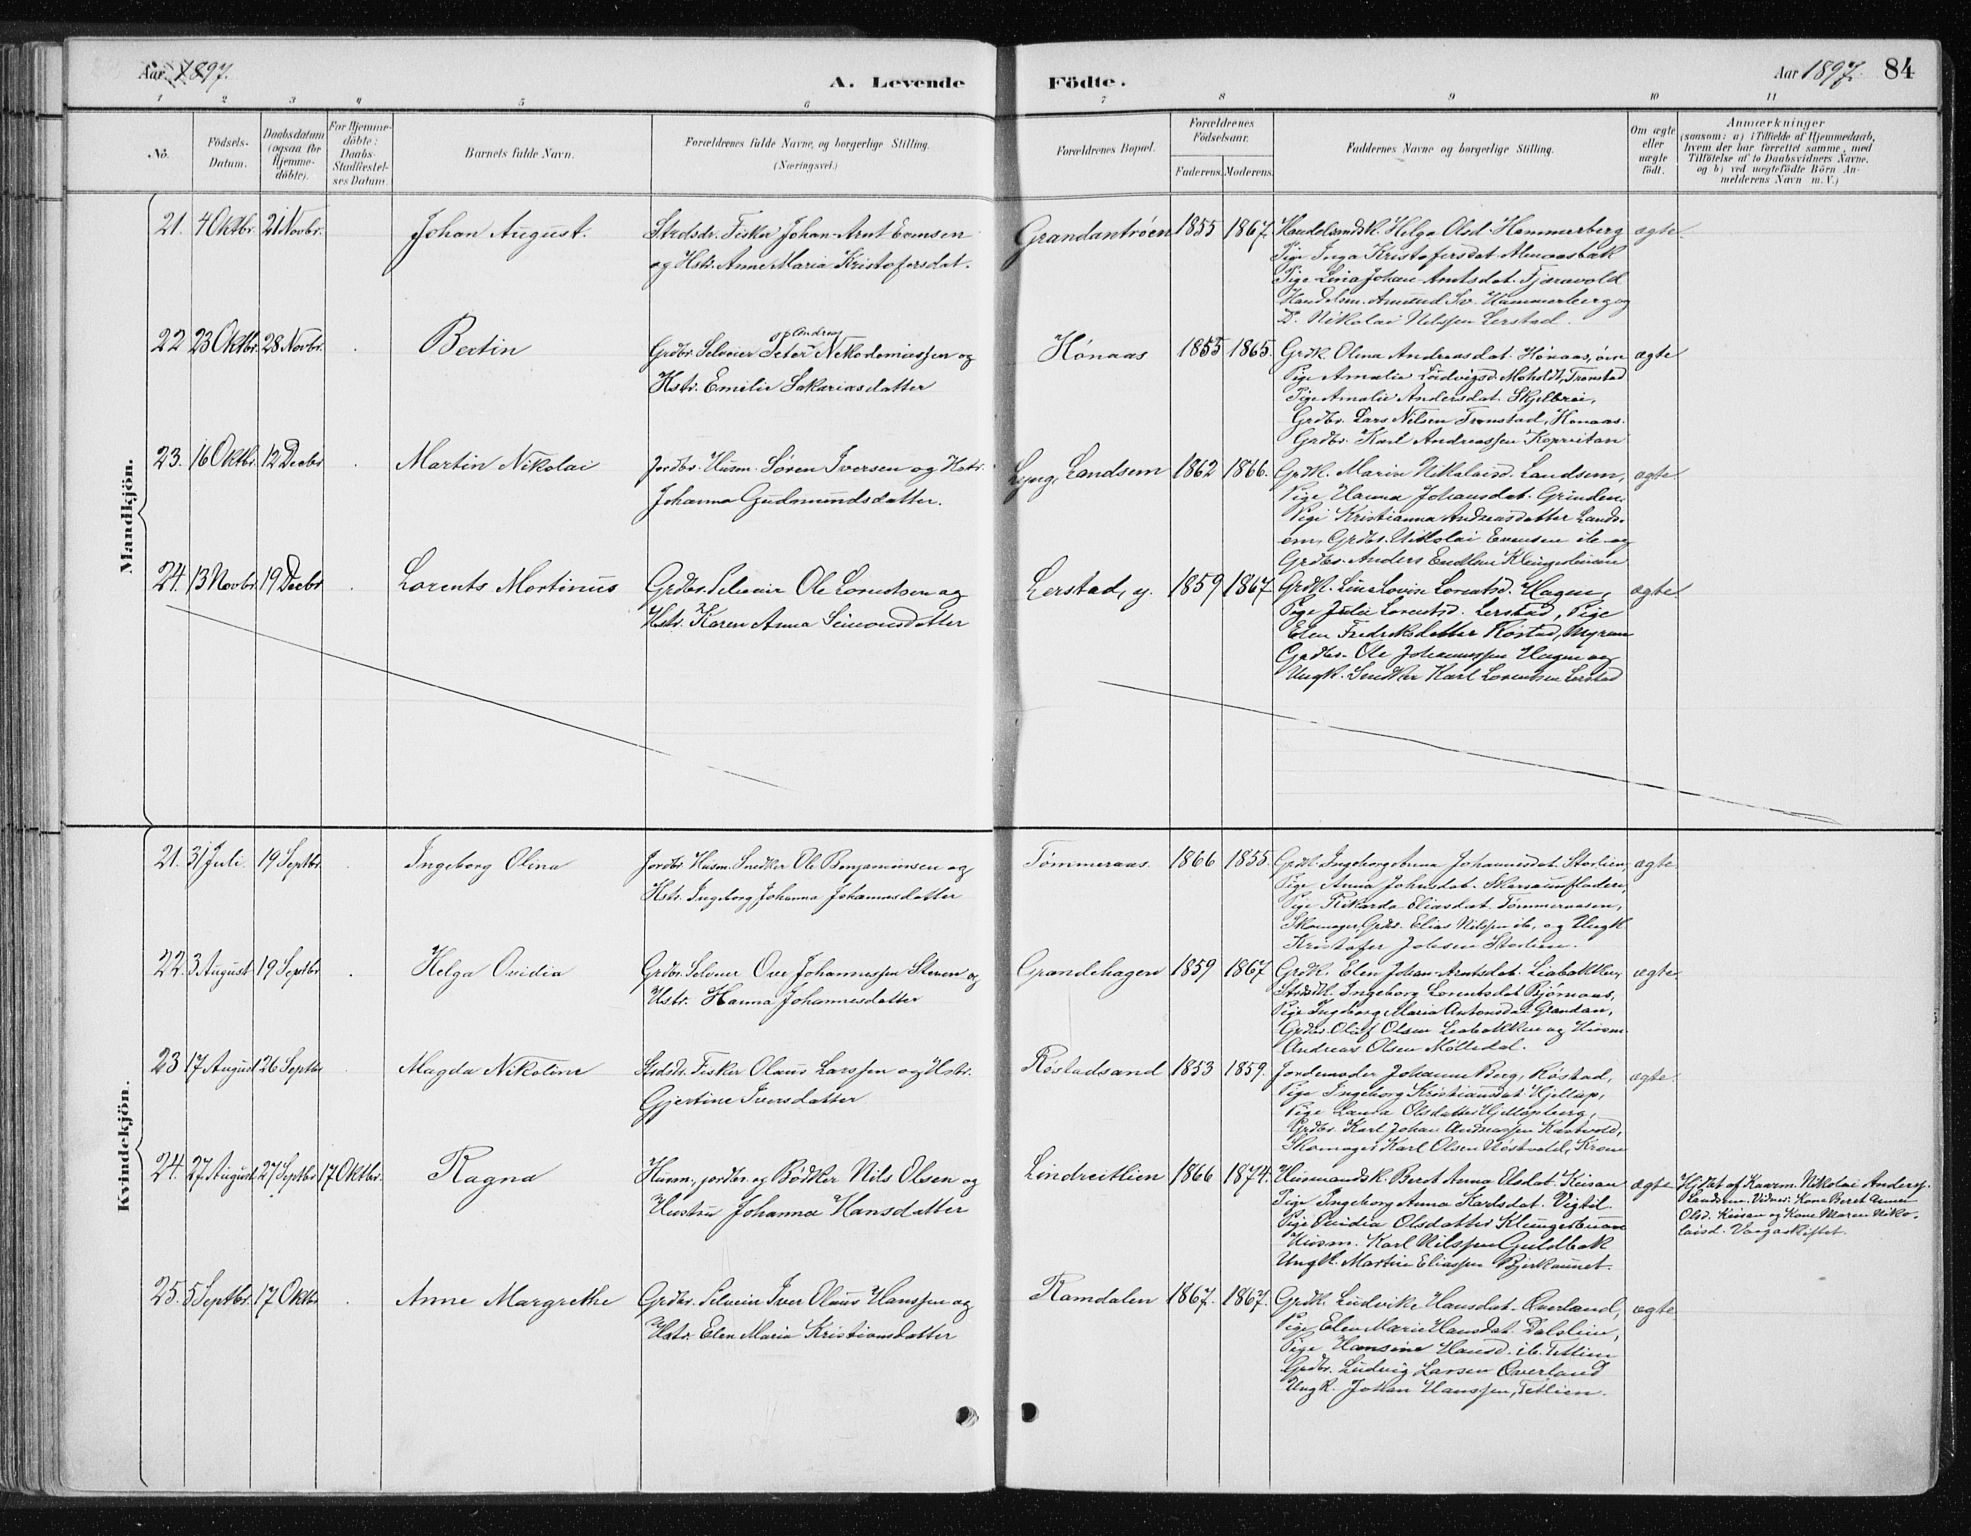 Aar 1897.
A. Levende
Fødte.
Aar 1897.
84
1 2 3 4 5 6 7 8 9 10 11
No.
Fødsels-
Datum.
Daabsdatum
(ogsaa for
Hjemme-
døbte).
For Hjemme-
døbte:
Daabs-
Stadfæstel-
ses Datum.
Barnets fulde Navn.
Forældrenes fulde Navne, og borgerlige Stilling.
(Næringsvei.)
Forældrenes Bopæl.
Forældrenes
Fødselsaar.
Faderens. Moderens.
Faddernes Navne og borgerlige Stilling.
Om ægte
eller
uægte
født.
Anmærkninger
(saasom: a) i Tilfælde af Hjemmedaab,
hvem der har forrettet samme, med
Tilføielse af to Daabsvidners Navne,
og b) ved uægtefødte Børn An-
melderens Navn m. V.)
Mandkjön.
21. 4 Oktbr. 21 Novbr.
Johan August.
Strdsdr. Fisker Johan Arnt Evensen
og Hstr. Anne Maria Kristofersdat.
Grandantrøen 1855 1867
Handelsmdsk. Helga Olsd. Hammerberg
Pige Inga Kristofersdat.
Pige Lina Johan-Arntsdat. Fjæravold
Handelsm. Amund Hammerberg og
D. Nikolai Nilssen Lerstad.
ægte.
22 23 Oktbr. 28 Novbr.
Bertin
Andreas
Grdbr. Selveier Peter Nekodemiassen og
Hstr. Emilie Sakariasdatter
Hónaas 1855 1865.
Grdk. Olina Andreasdat. Hónaas,
Pige Amalie Ludvigsd. Moholdt, Tronstad
Pige Amalie Andersdat. Skjelbrei,
Grdbr. Lars Nilsen Tronstad, Honaas.
Grdbr. Karl Andreassen Kopreitan
ægte
23. 16 Oktbr. 12 Decbr
Martin Nikolai
Jordbr. Husm. Sören Iversen og Hstr.
Johanna Gudmundsdatter.
Landsem 1862 1866.
Grdk. Maria Nikolaisd. Landsem,
Pige Hanna Johansdat. Grinden,
Pige Kristianna Andreasdatter Lands-
em, Grdbr. Nikolai Evensen ib. og
Grdbr. Anders
ægte.
24. 13 Novbr. 19 Decbr
Lorents Martinus
Grdbr. Selveier Ole Lorentsen og
Hstr. Karen Anna Simonsdatter
Lerstad, y. 1859 1867
Grdk. Lina Lovise Lorentsd. Hagen,
Pige Julie Lorentsd. Lerstad, Pige
Elen Fredriksdatter Röstad, Myran
Grdbr. Ole Johannessen Hagen og
Ungk. Snedker Karl Lorentsen Lerstad
ægte.
Kvindekjön.
21. 31 Juli 19 Septbr.
Ingeborg Olina
Jordbr. Husm. Snedker Ole Benjaminsen og
Hstr. Ingeborg Johanna Johannesdatter
Tømmeraas. 1866 1855.
Grdk. Ingeborg Anna Johannesdat. Storlien,
Pige Anna Johnsdat.
Pige Rikarda Eliasdat. Tømmeraasen,
Skomager, Grdbr. Elias Nilssen ib., og Ungk.
Kristofer Johnsen Storlien.
ægte
22. 3 August 19 Septbr
Helga Ovidia
Grdbr. Selveier Ove Johannessen Steren og
Hstr. Hanna Johannesdatter
Grandehagen 1859 1867
Grdk. Elen Johan-Arntsdat. Liabakken,
Strdsk. Ingeborg Lorentsdat. Bjørnaas,
Pige Ingeborg Maria Antonsdat. Grandan,
Grdbr. Oluf Olsen Liabakken og Husm.
Andreas Olsen Mølledal.
ægte.
23 17 August 26 Septbr
Magda Nikoline
Strdsdr. Fisker Olaus Larssen og Hstr.
Gjertine Iversdatter
Røstadsand 1853 1859.
Jordemoder Johanna Berg, Röstad,
Pige Ingeborg Kristiansdat. Hjellup,
Pige Laura Olsdatter Hjellupberg,
Grdbr. Karl Johan Andreassen
Skomager Karl Olsen
ægte.
24. 27. August 27 Septbr 17 Oktbr.
Ragna
Husm., jordbr. og Bødker Nils Olsen og
Hustru Johanna Hansdatter
Lindreitlien 1866 1874.
Husmandsk. Beret Anna Olsdat. Keisan
Pige Ingeborg Anna Karlsdat. Vigtil
Pige Ovidia Olsdatter
Husm. Karl Nilssen Guldbak
Ungk. Martin Eliassen Bjerkaunet.
ægte
Hjdøbt af Husm. Nikolai Anders.
Landsem. Vidner: Kone Beret Anna
Olsd. Keisan og Kone Maren Niko-
laisd. Vangaskiftet.
25. 5 Septbr. 17 Oktbr
Anne Margrethe
Grdbr. Selveier Iver Olaus Hanssen og
Hstr. Elen Maria Kristiansdatter
Ramdalen 1867. 1867.
Grdk. Ludvikke Hansdat. Overland,
Pige Elen Marie Hansdat. Dalslien,
Pige Hansine Hansd. ib. Tetlien
Grdbr. Ludvig Larsen Overland
Ungk. Johan Hanssen, Tetlien.
ægte